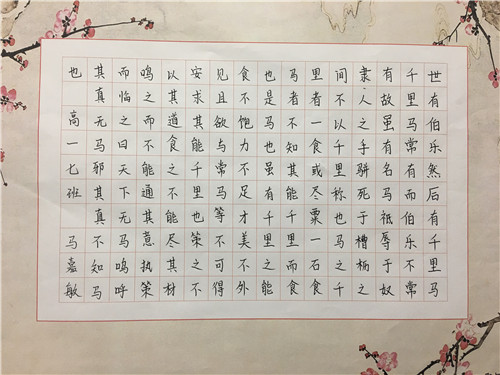 世有伯乐然后有千里马
千里马常有而伯乐不常
有故虽有名马祇辱于奴
隶人之手骈死于槽柄之
间不以千里称也马之千
里者一食或尽粟一石食
马者不知其能千里而食
也是马也虽有千里之能
食不饱力不足才美不外
见且欲与常马等不可得
安求其能千里也策之不
以其道食之不能尽其材
鸣之而不能通其意执策
而临之曰天下无马呜呼
其真无马邪其真不知马
也 高一七班 马嘉敏